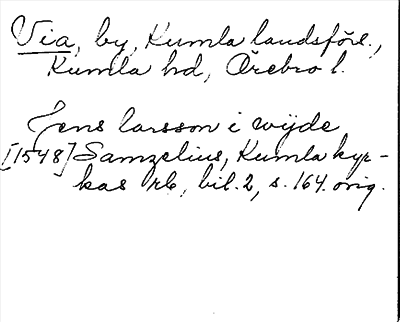 Via, by, Kumla landsförs.,
Kumla hd, Örebro l.
Jens larsson i wijde
[1548] Samzelius, Kumla kyr-
kas rb, bil. 2, s. 164. orig.